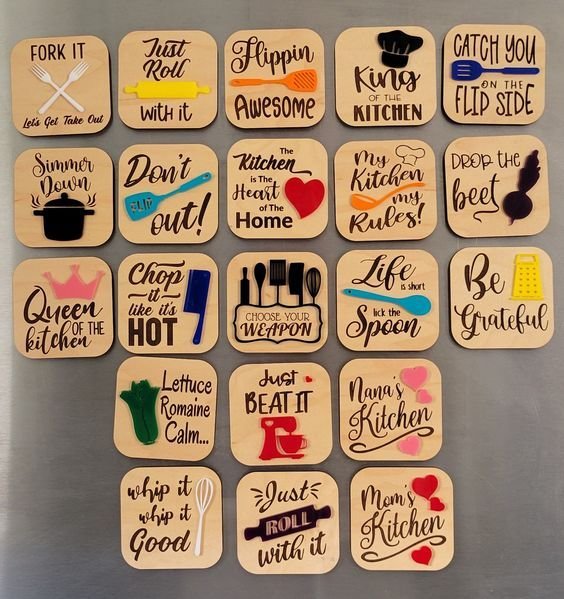 FORK IT
Let's Get Take Out
Just
Roll
with it
Flippin
AWESOME
King
OF THE
KITCHEN
CATCH YOU
ON THE
FLIP SIDE
Simmer
Down
Don't
FLIP
out!
The
Kitchen
is The
Heart
of The
Home
My
Kitchen
my
Rules!
DROP THE
beet
Queen
OF THE
kitchen
Chop
it
like it's
HOT
CHOOSE YOUR
WEAPON
Life
is short
lick the
Spoon
Be
Grateful
Lettuce
Romaine
Calm...
Just
BEAT IT
Nana's
Kitchen
whip it
whip it
Good
Just
ROLL
with it
Mom's
Kitchen